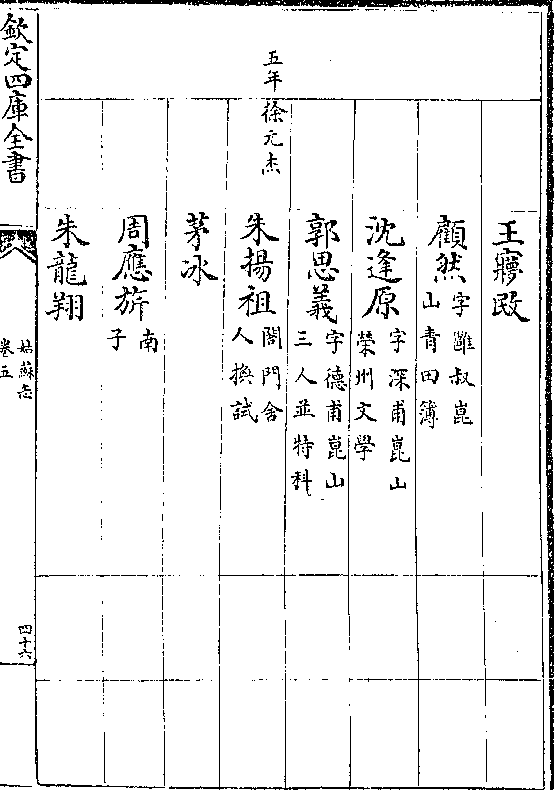 王
顧然
字雝叔崑
山青田簿
沈逢原
字深甫崑山
榮州文學
郭思義
字德甫崑山
三人並特科
五年徐元杰
朱揚祖
閤門舍
人換試
茅冰
周應旂
南
子
朱龍翔
欽定四庫全書
姑蘇志
卷五
四十六